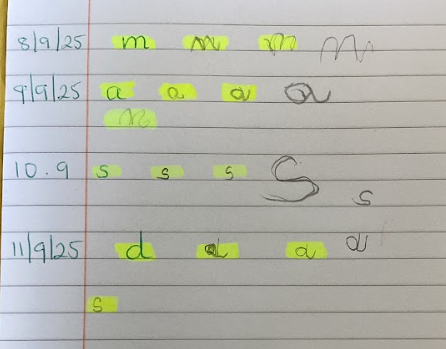 8/9/25 m m m m
9/9/25 a a a a
m
10.9 s s s S s
11/9/25 d d d d
s